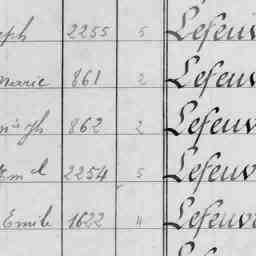 eph 2255 5 Lefeuv
Marie 861 2 Lefeuv
862 2 Lefeuv
Em el 2254 5 Lefeuv
Emile 1622 4 Lefeuv